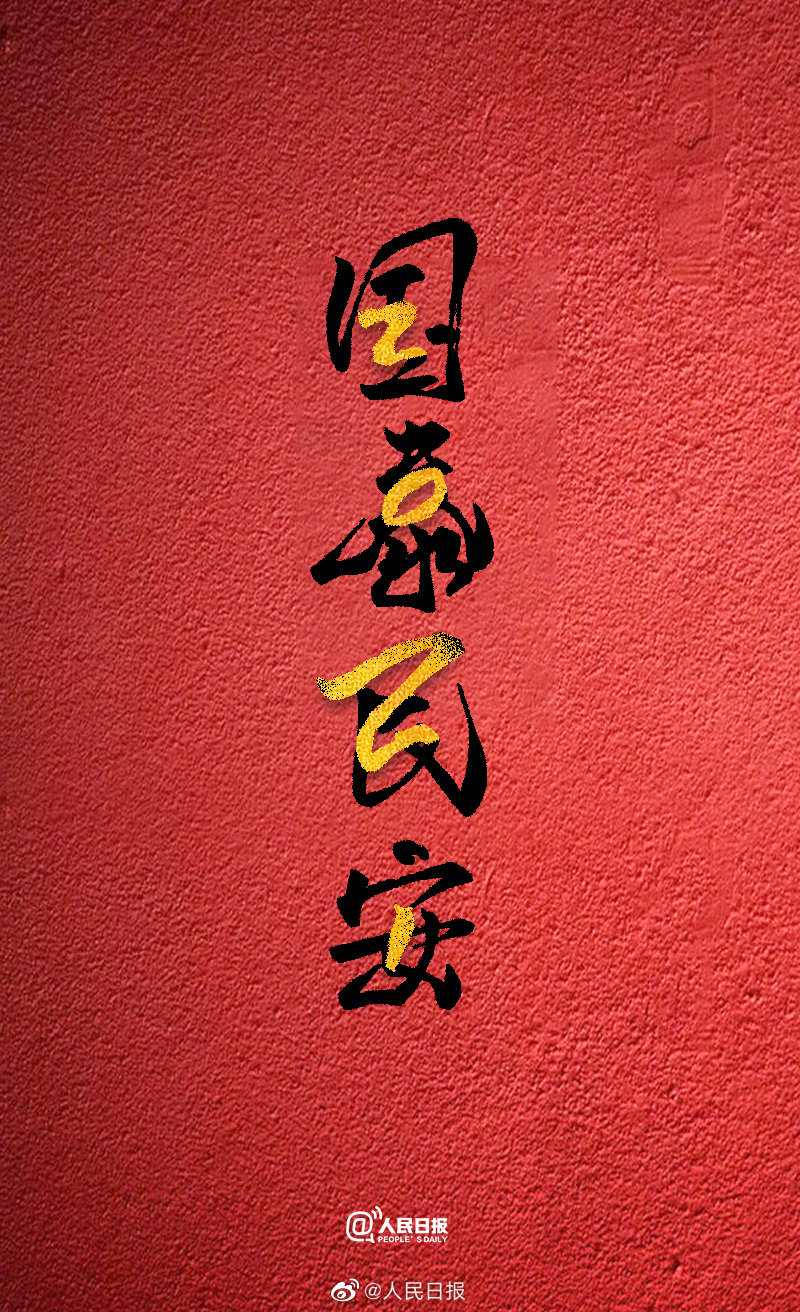 国泰民安
@人民日报
PEOPLE'S DAILY
@人民日报